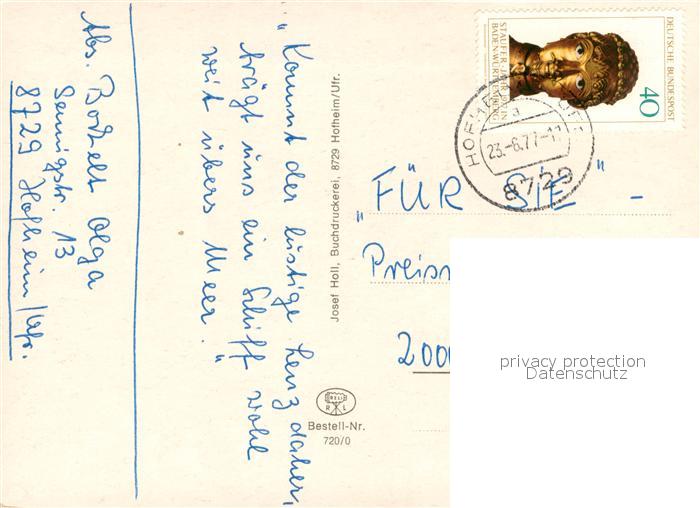 Abs. Bothelt Olga
Sennigstr. 13
8729 Hofheim/Ufr.
"Kommt der lustige Lenz daher,
trägt uns ein Schiff wohl
weit übers Meer."
Josef Holl, Buchdruckerei, 8729 Hofheim/Ufr.
RELI
R L
Bestell-Nr.
720/0
DEUTSCHE BUNDESPOST
40
STAUFER-JAHR 1977 IN
BADEN-WÜRTTEMBERG
a
23.-6.77-11
8729
"FÜR SIE" -
200
privacy protection
Datenschutz